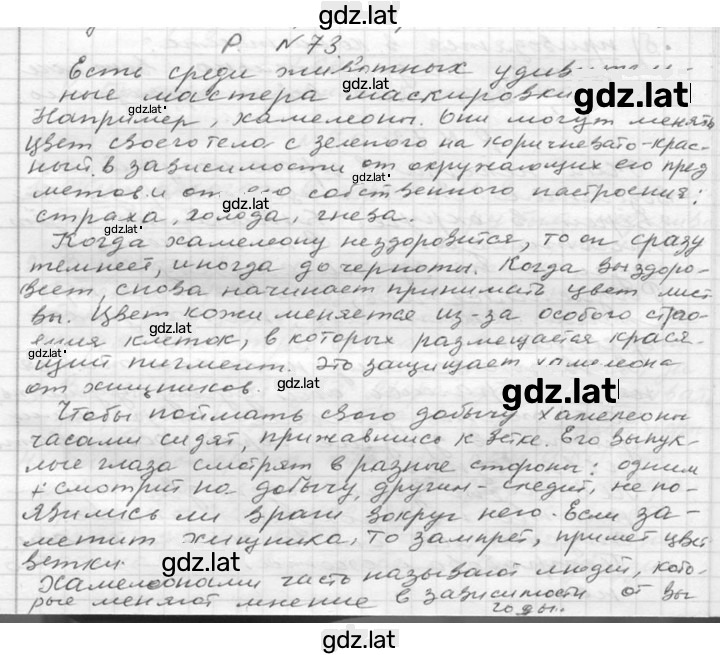 gdz.lat
Р N 73
Есть среди животных
ные мастера маскировки
Например, хамелеоны. Они могут менять
цвет своего тела с зеленого на коричневато-крас-
ный в зависимости от окружающих его пред
метов и от его собственного настроения:
страха, голода, гнева.
Когда хамелеону нездоровится, то он сразу
темнеет, иногда до черноты. Когда выздоро-
веет, снова начинает принимать цвет лист
вы. Цвет кожи меняется из-за особого строе-
ения клеток, в которых размещается крася-
щий пигмент. Это защищает хамелеона
от хищников.
Чтобы поймать свою добычу хамелеоны
часами сидят, прижавшись к ветке. Его выпук-
лые глаза смотрят в разные стороны: одним
смотрит на добычу, другим - следит, не по-
явились ли враги вокруг него. Если за-
метит хищника, то замрет, примет цвет
ветки.
Хамелеонами часть называют людей, кото-
рые меняют мнение в зависимости от вы
годы.
gdz.lat
gdz.lat
gdz.lat
gdz.lat
gdz.lat
gdz.lat
gdz.lat
gdz.lat
gdz.lat
gdz.lat
gdz.lat
gdz.lat
gdz.lat